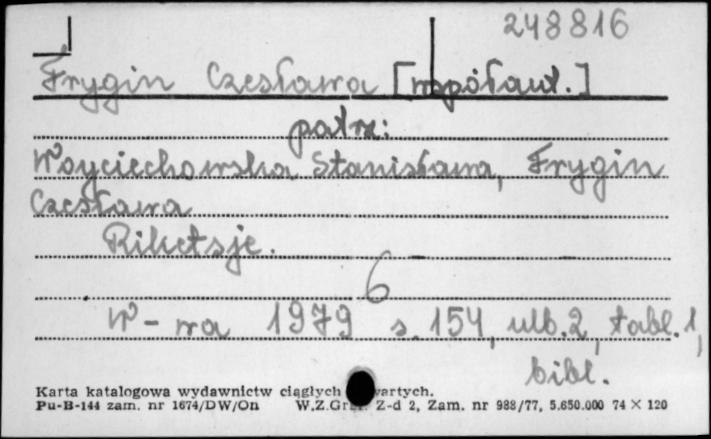 248816
Frygin Czesława [współaut.]
patrz:
Woyciechowska Stanisława, Frygin
Czesława
Riketsje.
6
W-wa 1979 s. 154, nlb. 2, tabl. 1,
bibl.
Karta katalogowa wydawnictw ciągłych wartych.
Pu-B-144 zam. nr 1674/DW/On W.Z.Graf. Z-d 2, Zam. nr 988/77, 5.650.000 74 × 120